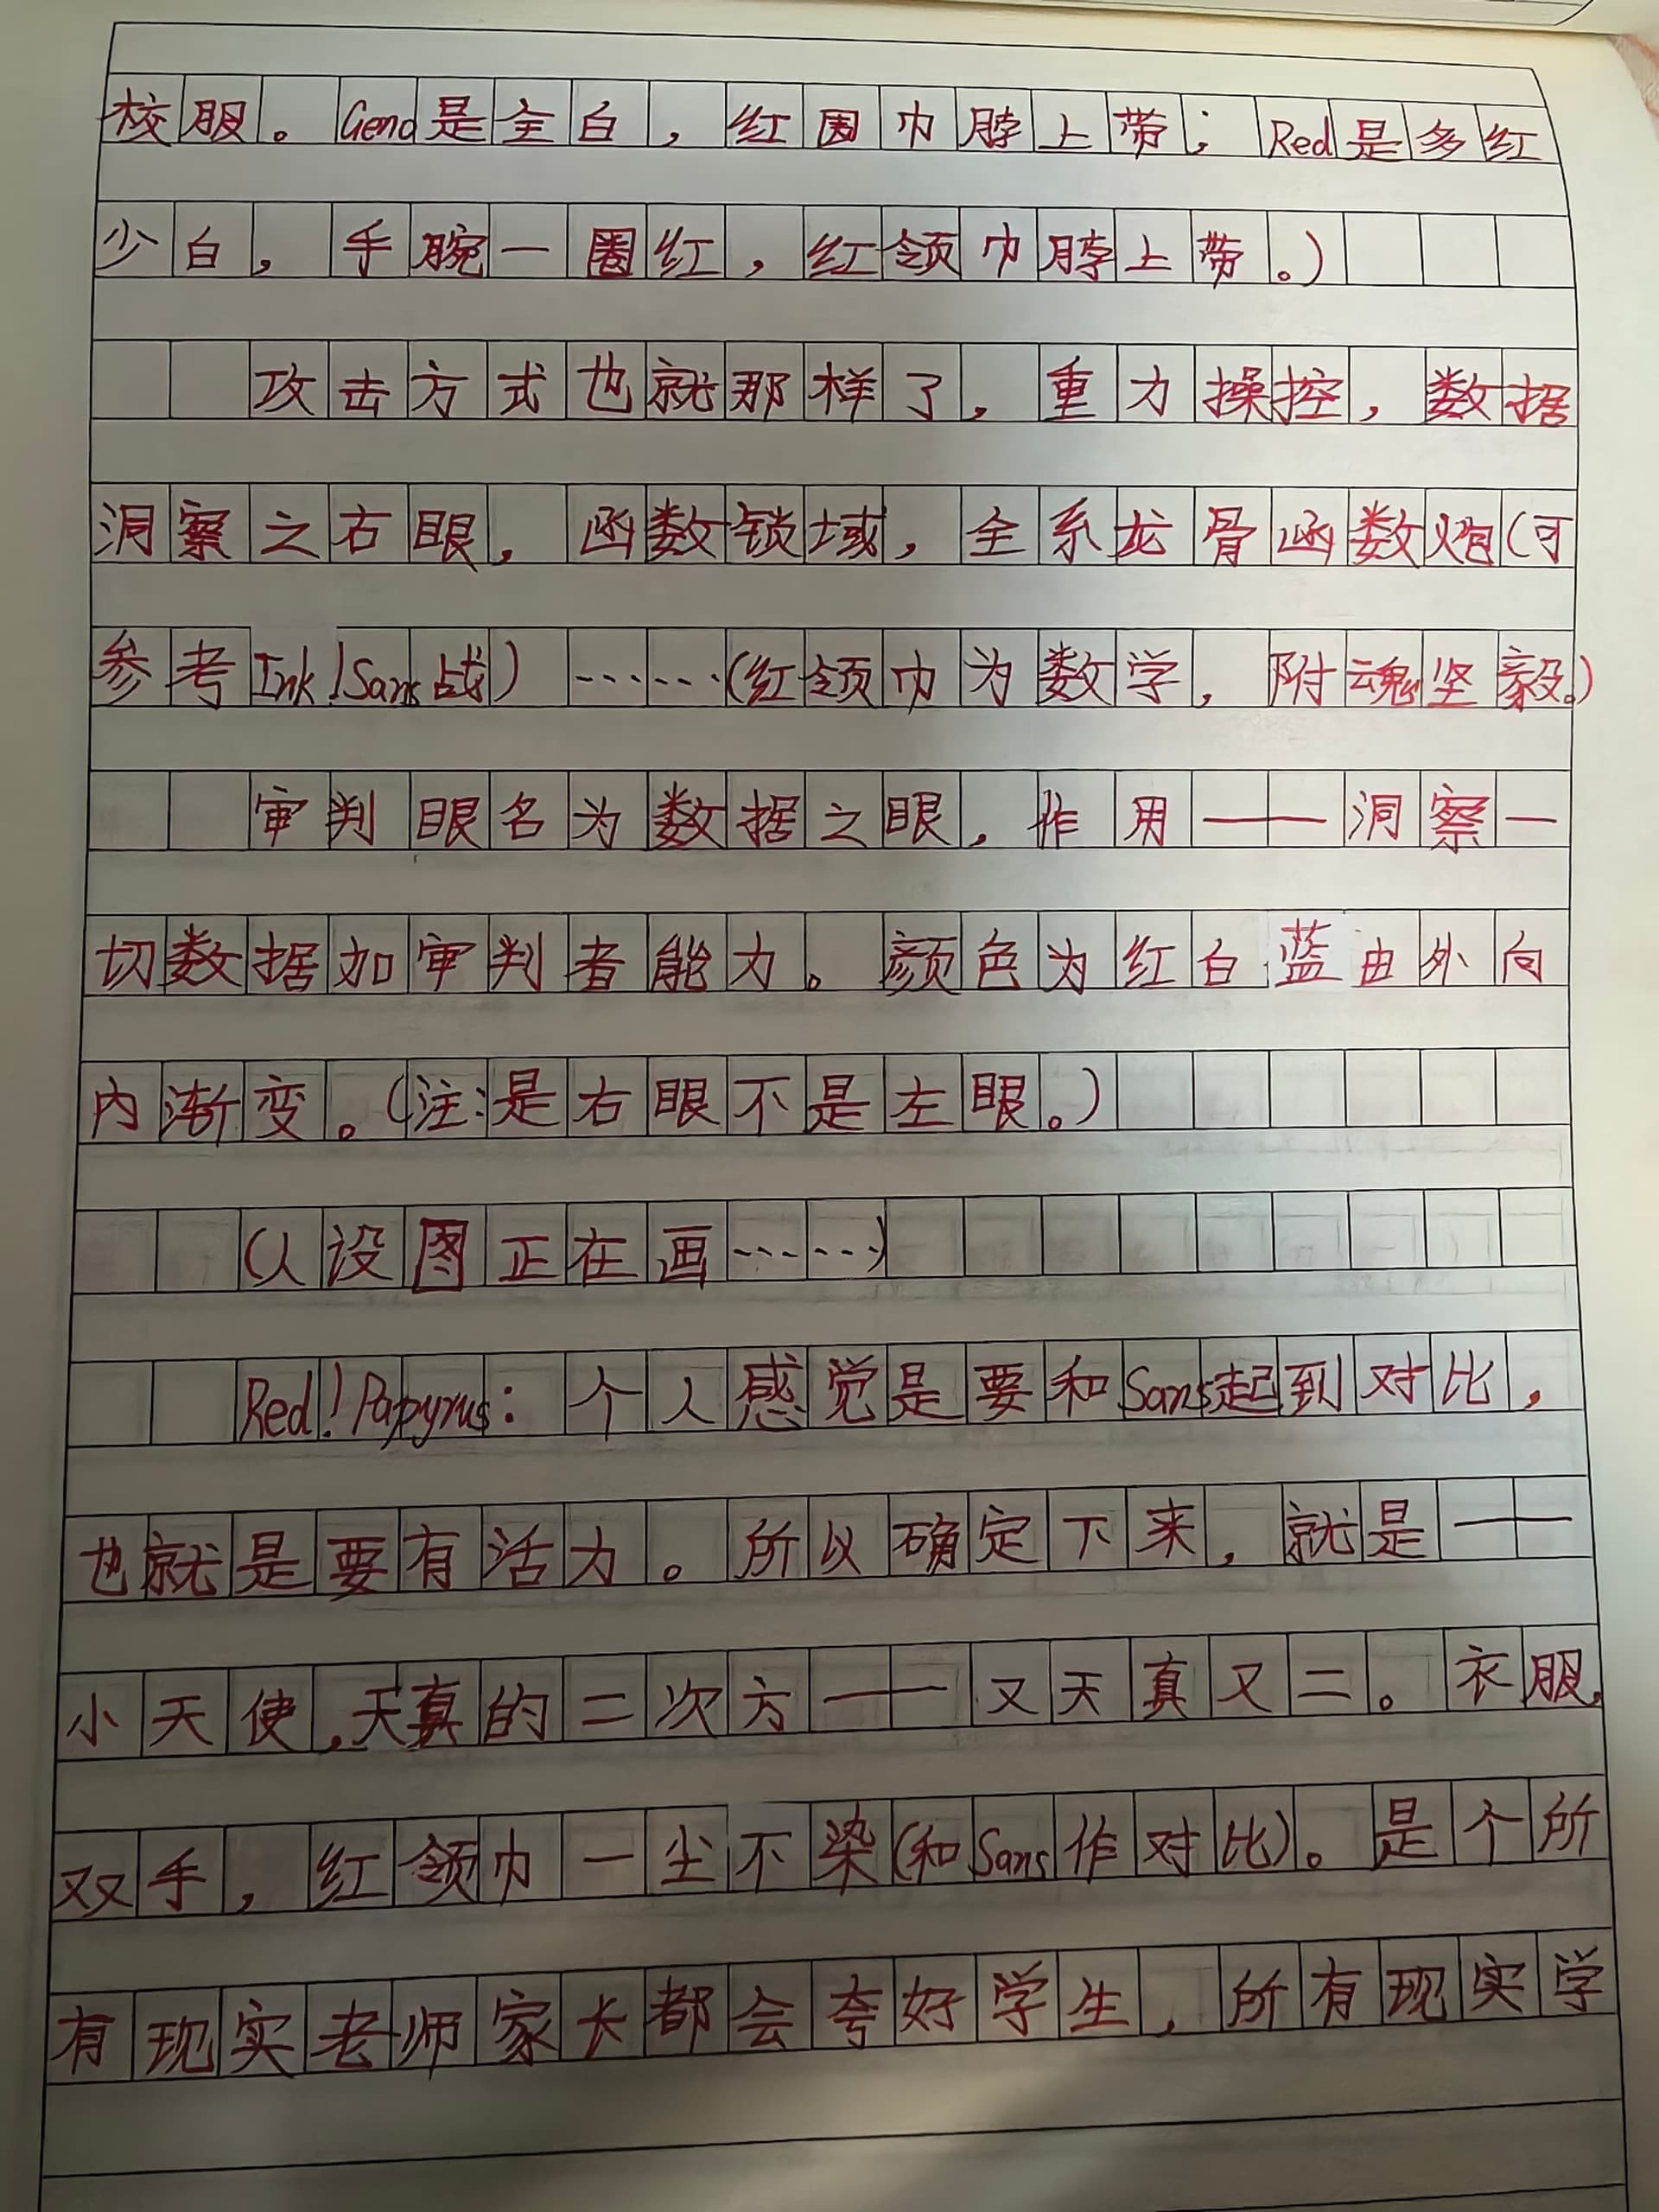 校服。Geno是全白，红围巾脖上带；Red是多红
少白，手腕一圈红，红领巾脖上带。）
攻击方式也就那样了，重力操控，数据
洞察之右眼，函数锁域，全系龙骨函数炮（可
参考Ink!Sans战）……（红领巾为数学，附魂坚毅。）
审判眼名为数据之眼，作用——洞察一
切数据加审判者能力。颜色为红白蓝由外向
内渐变。（注：是右眼不是左眼。）
（人设图正在画……）
Red!Papyrus：个人感觉是要和Sans起到对比，
也就是要有活力。所以确定下来，就是——
小天使，天真的二次方——又天真又二。衣服，
双手，红领巾一尘不染（和Sans作对比）。是个所
有现实老师家长都会夸好学生，所有现实学